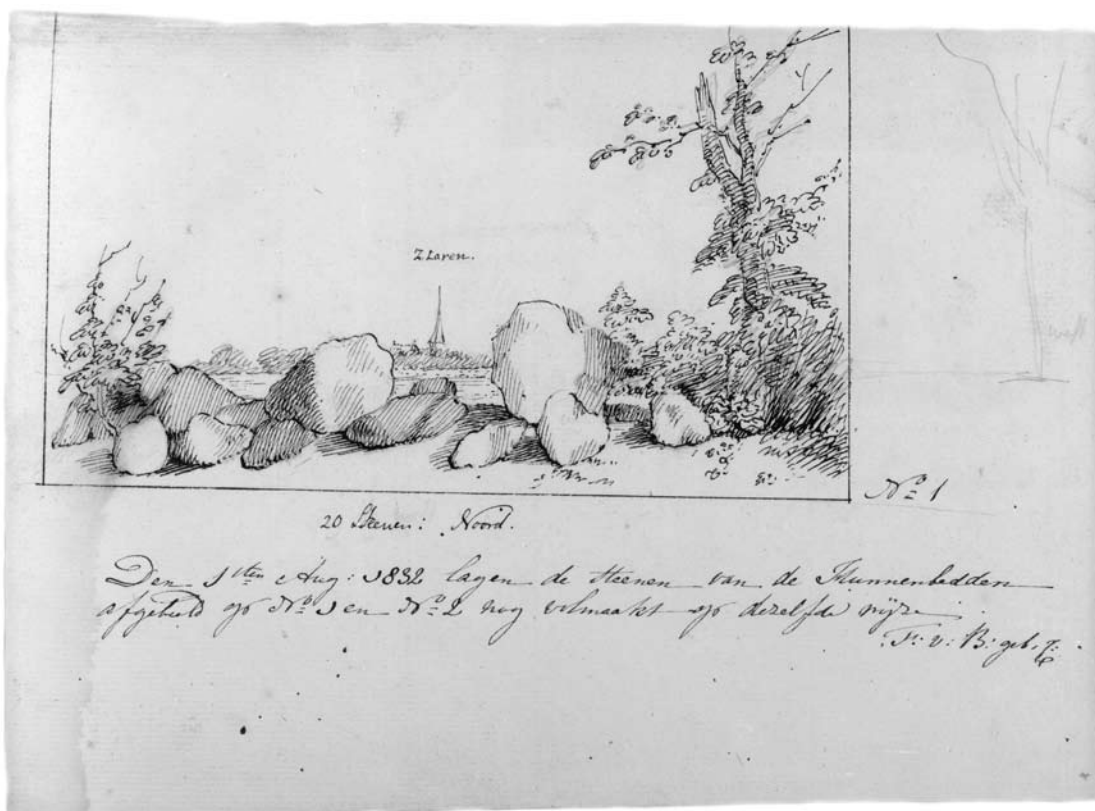 Z Laren.
Nº 1
20 Steenen: Noord.
Den 1sten Aug: 1832 lagen de Steenen van de Hunnenbedden
afgebeeld op Nº 1 en Nº 2 nog volmaakt op dezelfde wijze
F: v: B: geb.